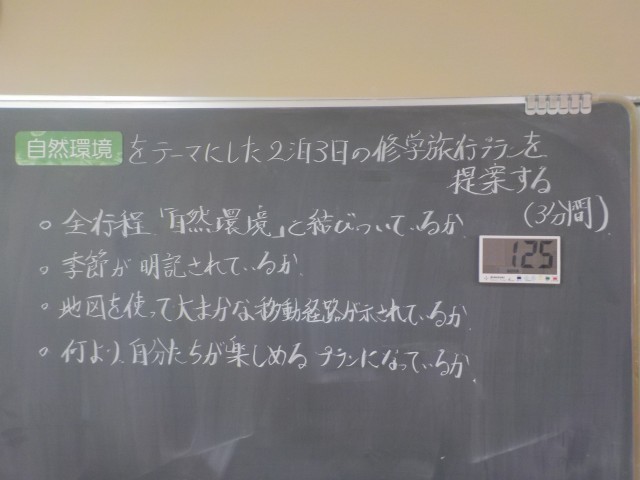 自然環境をテーマにした2泊3日の修学旅行プランを
提案する
(3分間)
○ 全行程、「自然環境」と結びついているか。
○ 季節が明記されているか。
○ 地図を使って大まかな移動経路が示されているか。
○ 何より、自分たちが楽しめるプランになっているか。
125